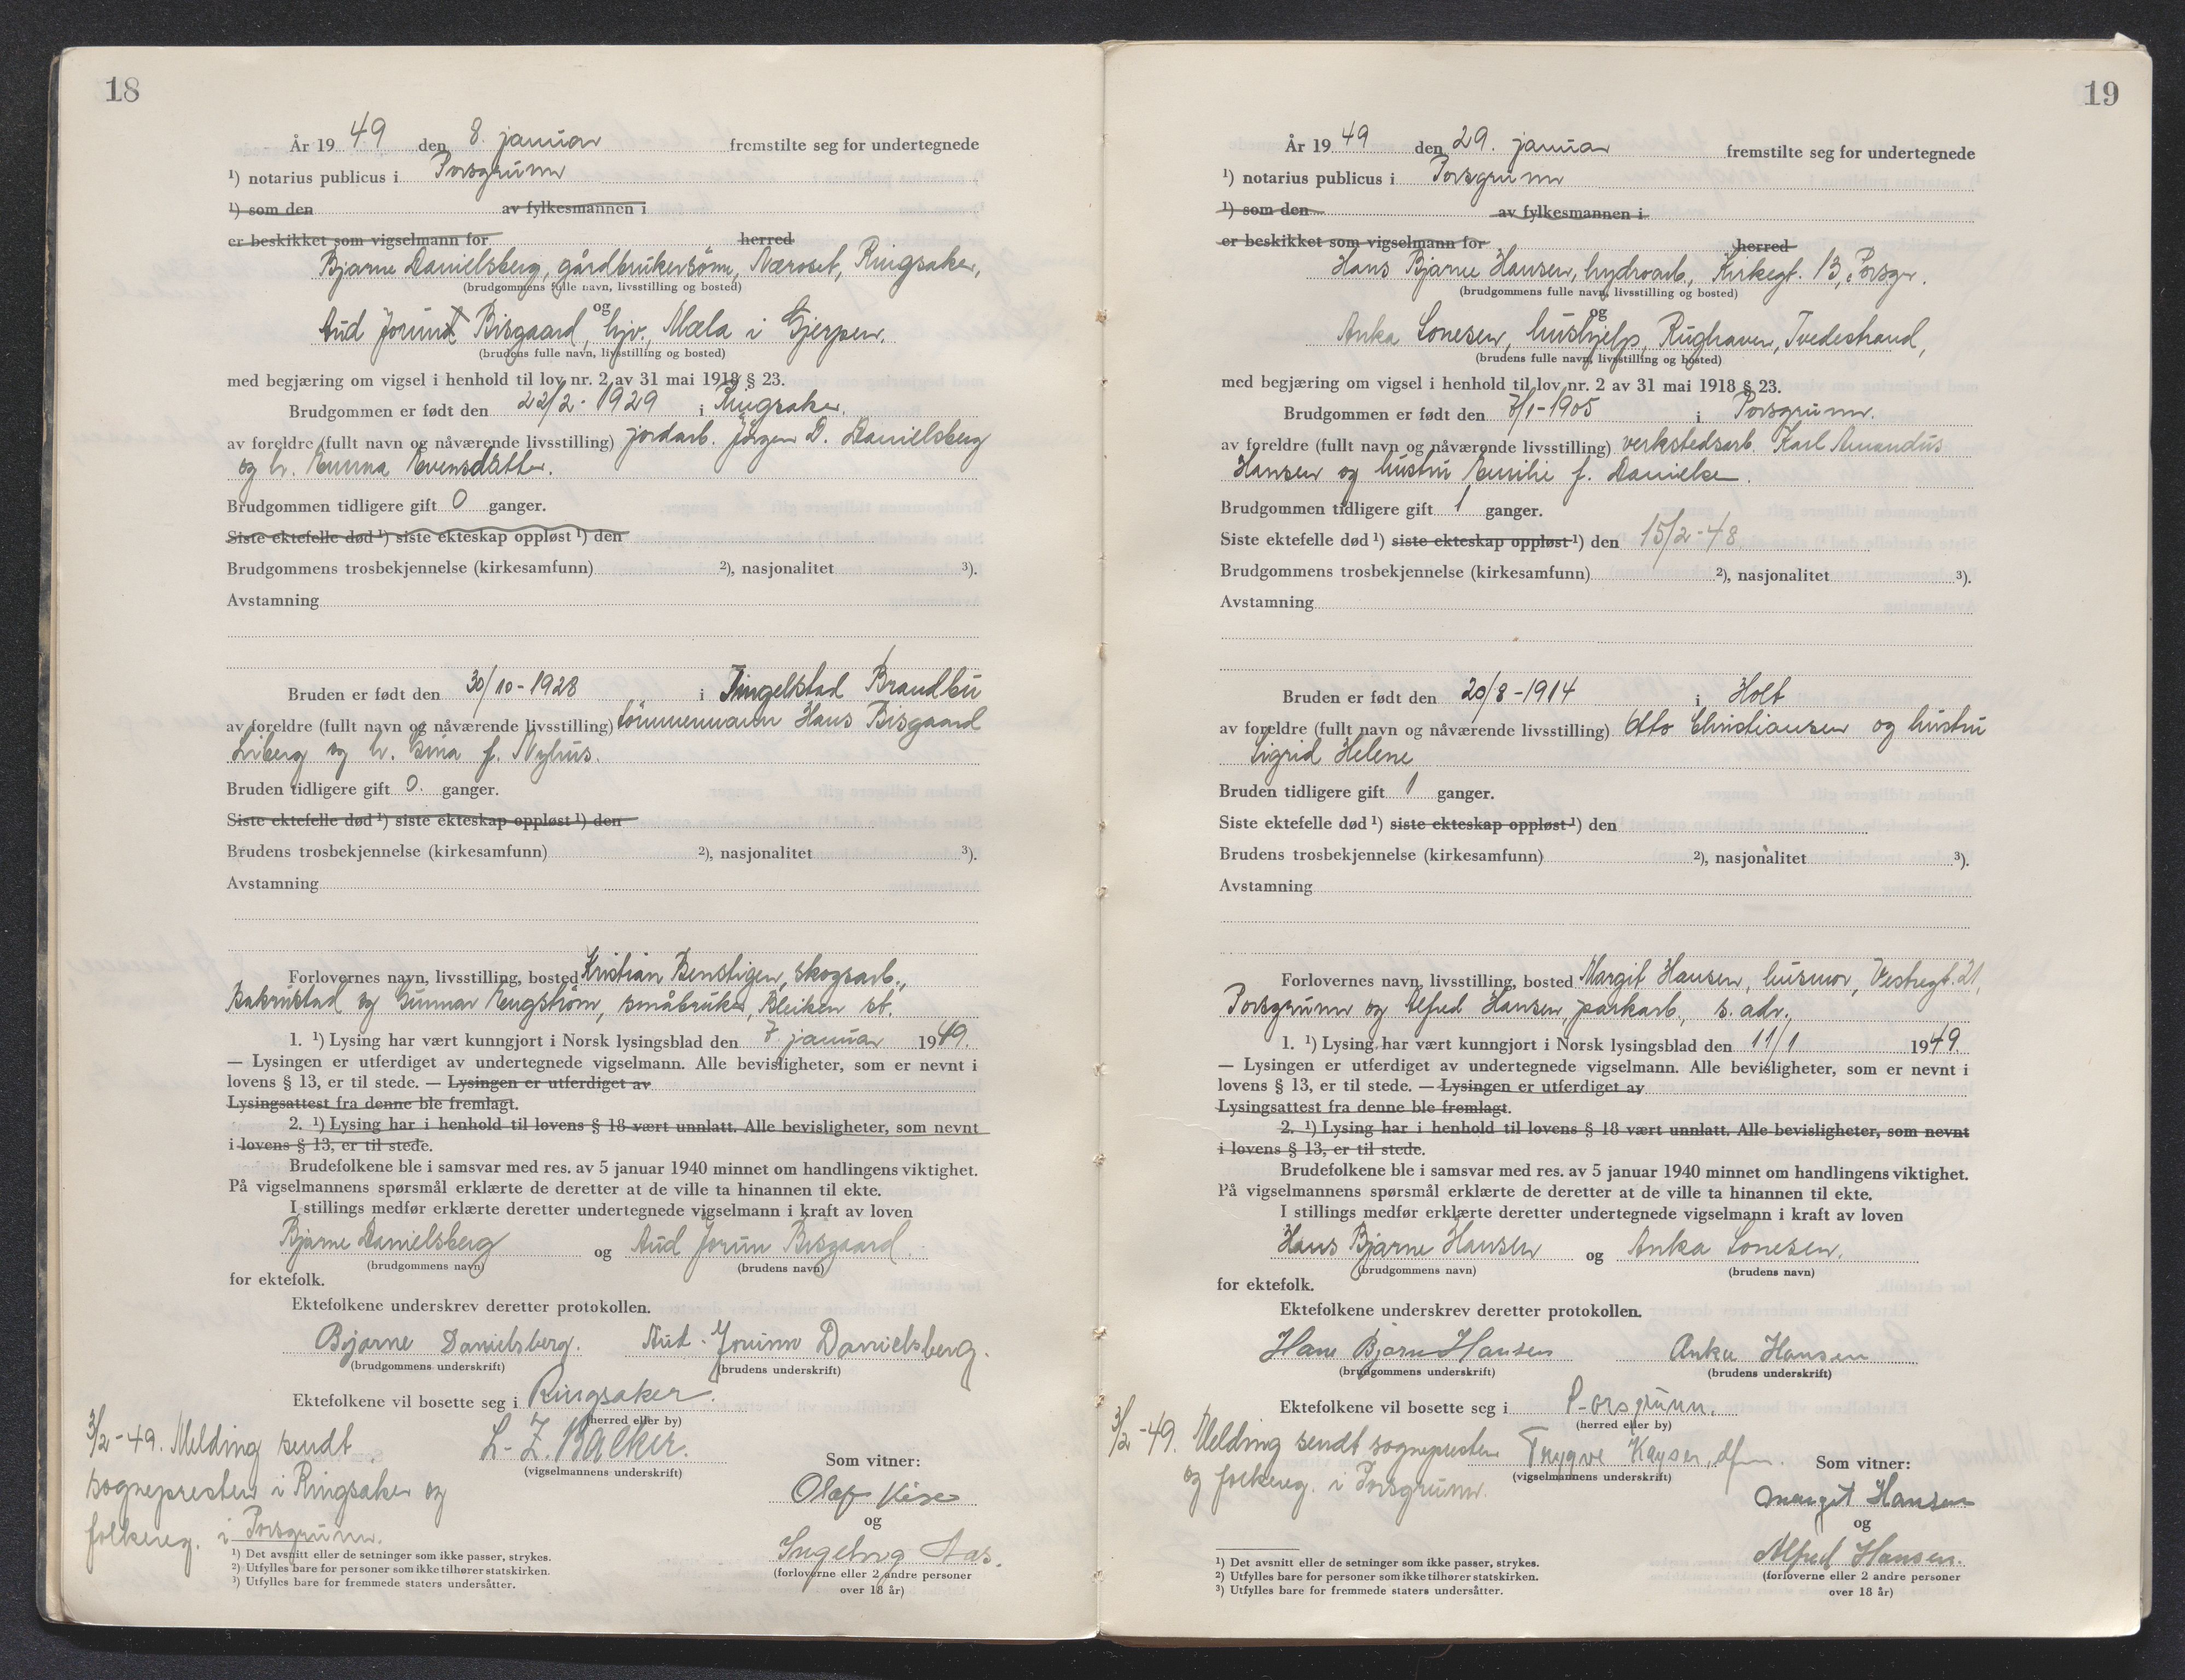 18
År 19 49 den 8. januar fremstilte seg for undertegnede
¹) notarius publicus i Porsgrunn
¹) som den av fylkesmannen i
er beskikket som vigselmann for herred
Bjarne Danielsberg, gårdbrukersönn, Næroset, Ringsaker,
(brudgommens fulle navn, livsstilling og bosted)
og
Aud Jorunn Bisgaard, hjv., Mæla i Gjerpen.
(brudens fulle navn, livsstilling og bosted)
med begjæring om vigsel i henhold til lov nr. 2 av 31 mai 1918 § 23.
Brudgommen er født den 22/2-1929 i Ringsaker.
av foreldre (fullt navn og nåværende livsstilling) jordarb. Jörgen D. Danielsberg
og h. Emma Evensdatter.
Brudgommen tidligere gift 0 ganger.
Siste ektefelle død ¹) siste ekteskap oppløst ¹) den
Brudgommens trosbekjennelse (kirkesamfunn) ²), nasjonalitet ³).
Avstamning
Bruden er født den 30/10-1928 i Jingelstad Brandbu
av foreldre (fullt navn og nåværende livsstilling) tömmermann Hans Bisgaard
Liberg og h. Gina f. Nyhus.
Bruden tidligere gift 0. ganger.
Siste ektefelle død ¹) siste ekteskap oppløst ¹) den
Brudens trosbekjennelse (kirkesamfunn) ²), nasjonalitet ³).
Avstamning
Forlovernes navn, livsstilling, bosted Kristian Benstigen, skogsarb.,
og Gunnar Engström, småbruker, Bleiken st.
1. ¹) Lysing har vært kunngjort i Norsk lysingsblad den 7. januar 1949.
— Lysingen er utferdiget av undertegnede vigselmann. Alle bevisligheter, som er nevnt i
lovens § 13, er til stede. — Lysingen er utferdiget av
Lysingsattest fra denne ble fremlagt.
2. ¹) Lysing har i henhold til lovens § 18 vært unnlatt. Alle bevisligheter, som nevnt
i lovens § 13, er til stede.
Brudefolkene ble i samsvar med res. av 5 januar 1940 minnet om handlingens viktighet.
På vigselmannens spørsmål erklærte de deretter at de ville ta hinannen til ekte.
I stillings medfør erklærte deretter undertegnede vigselmann i kraft av loven
Bjarne Danielsberg og Aud Jorun Bisgaard.
(brudgommens navn) (brudens navn)
for ektefolk.
Ektefolkene underskrev deretter protokollen.
Bjarne Danielsberg. Aud. Jorunn Danielsberg.
(brudgommens underskrift) (brudens underskrift)
Ektefolkene vil bosette seg i Ringsaker.
(herred eller by)
3/2-49. Melding sendt
sognepresten i Ringsaker og
folkereg. i Porsgrunn.
L. Z. Backer.
(vigselmannens underskrift)
Som vitner:
Olaf Kise
og
Ingeborg Aas.
(forloverne eller 2 andre personer
over 18 år)
¹) Det avsnitt eller de setninger som ikke passer, strykes.
²) Utfylles bare for personer som ikke tilhører statskirken.
³) Utfylles bare for fremmede staters undersåtter.
19
År 19 49 den 29. januar fremstilte seg for undertegnede
¹) notarius publicus i Porsgrunn
¹) som den av fylkesmannen i
er beskikket som vigselmann for herred
Hans Bjarne Hansen, hydroarb., Kirkegt. 13, Porsgr.
(brudgommens fulle navn, livsstilling og bosted)
og
Anka Lonesen, hushjelp, Rughaven, Tvedestrand,
(brudens fulle navn, livsstilling og bosted)
med begjæring om vigsel i henhold til lov nr. 2 av 31 mai 1918 § 23.
Brudgommen er født den 7/1-1905 i Porsgrunn.
av foreldre (fullt navn og nåværende livsstilling) verkstedsarb. Karl Amandus
Hansen og hustru Emilie f. Danielsen.
Brudgommen tidligere gift 1 ganger.
Siste ektefelle død ¹) siste ekteskap oppløst ¹) den 15/2-48.
Brudgommens trosbekjennelse (kirkesamfunn) ²), nasjonalitet ³).
Avstamning
Bruden er født den 20/8-1914 i Holt
av foreldre (fullt navn og nåværende livsstilling) Otto Christiansen og hustru
Sigrid Helene
Bruden tidligere gift 1 ganger.
Siste ektefelle død ¹) siste ekteskap oppløst ¹) den
Brudens trosbekjennelse (kirkesamfunn) ²), nasjonalitet ³).
Avstamning
Forlovernes navn, livsstilling, bosted Margit Hansen, husmor, Vestregt. 21,
Porsgrunn og Alfred Hansen, parkarb., s. adr.,
1. ¹) Lysing har vært kunngjort i Norsk lysingsblad den 11/1 1949.
— Lysingen er utferdiget av undertegnede vigselmann. Alle bevisligheter, som er nevnt i
lovens § 13, er til stede. — Lysingen er utferdiget av
Lysingsattest fra denne ble fremlagt.
2. ¹) Lysing har i henhold til lovens § 18 vært unnlatt. Alle bevisligheter, som nevnt
i lovens § 13, er til stede.
Brudefolkene ble i samsvar med res. av 5 januar 1940 minnet om handlingens viktighet.
På vigselmannens spørsmål erklærte de deretter at de ville ta hinannen til ekte.
I stillings medfør erklærte deretter undertegnede vigselmann i kraft av loven
Hans Bjarne Hansen og Anka Lonesen.
(brudgommens navn) (brudens navn)
for ektefolk.
Ektefolkene underskrev deretter protokollen.
Hans Bjarne Hansen Anka Hansen
(brudgommens underskrift) (brudens underskrift)
Ektefolkene vil bosette seg i Porsgrunn.
(herred eller by)
3/2-49. Melding sendt sognepresten
og folkereg. i Porsgrunn.
Trygve Kayser, dfm.
(vigselmannens underskrift)
Som vitner:
Margit Hansen
og
Alfred Hansen.
(forloverne eller 2 andre personer
over 18 år)
¹) Det avsnitt eller de setninger som ikke passer, strykes.
²) Utfylles bare for personer som ikke tilhører statskirken.
³) Utfylles bare for fremmede staters undersåtter.